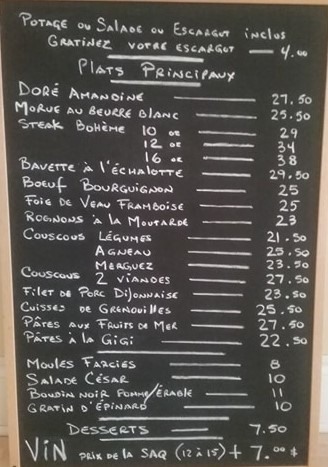 Potage ou Salade ou Escargot inclus
Gratinez votre escargot — 4.00
Plats Principaux
Doré Amandine — 27.50
Morue au beurre blanc — 25.50
Steak Bohème 10 oz — 29
12 oz — 34
16 oz — 38
Bavette à l'échalotte — 29.50
Boeuf Bourguignon — 25
Foie de Veau Framboise — 25
Rognons à la Moutarde — 23
Couscous Légumes — 21.50
Agneau — 25.50
Merguez — 23.50
Couscous 2 viandes — 27.50
Filet de Porc Dijonnaise — 23.50
Cuisses de Grenouilles — 25.50
Pâtes aux Fruits de Mer — 27.50
Pâtes à la Gigi — 22.50
Moules Farcies — 8
Salade César — 10
Boudin noir pomme/érable — 11
Gratin d'Épinard — 10
Desserts — 7.50
Vin prix de la SAQ (12 à 15) + 7.00 $